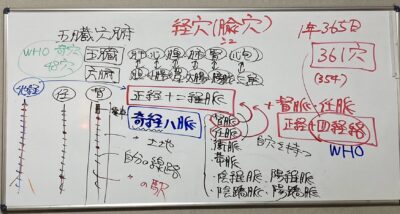 五臓六腑
経穴(腧穴)
1年365日
361穴
(354)
WHO 奇穴
48穴
五臓
肝 心 脾 肺 腎 (心包)
六腑
胆 小腸 胃 大腸 膀胱 三焦
任
督
正経十二経脈
+督脈・任脈
奇経八脈
督脈
任脈
衝脈
帯脈
陰経脈
陰蹻脈、陽蹻脈
自穴を持つ
正経十四経絡
WHO
土地
自分の線路
〃の駅